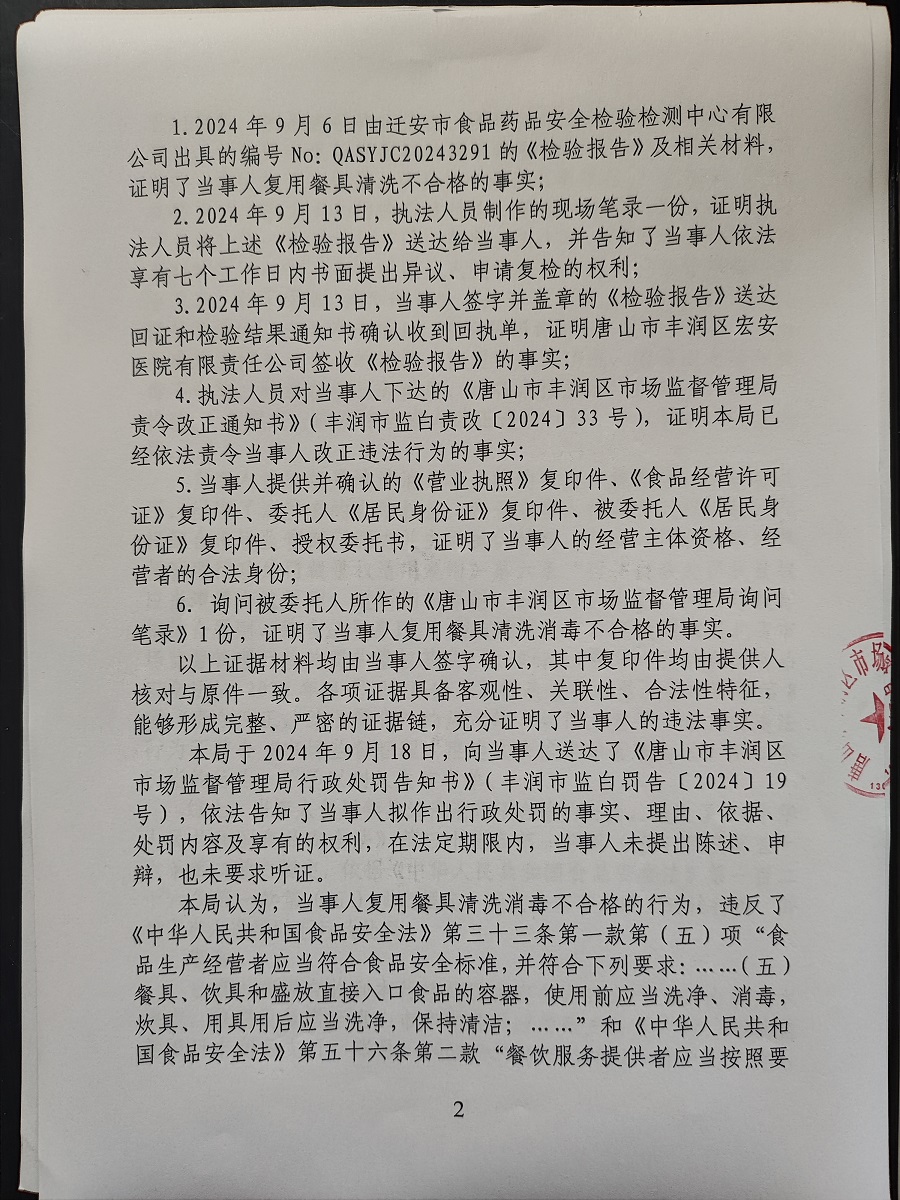 1.2024年9月6日由迁安市食品药品安全检验检测中心有限
公司出具的编号No：QASYJC20243291的《检验报告》及相关材料，
证明了当事人复用餐具清洗不合格的事实；
2.2024年9月13日，执法人员制作的现场笔录一份，证明执
法人员将上述《检验报告》送达给当事人，并告知了当事人依法
享有七个工作日内书面提出异议、申请复检的权利；
3.2024年9月13日，当事人签字并盖章的《检验报告》送达
回证和检验结果通知书确认收到回执单，证明唐山市丰润区宏安
医院有限责任公司签收《检验报告》的事实；
4.执法人员对当事人下达的《唐山市丰润区市场监督管理局
责令改正通知书》（丰润市监白责改〔2024〕33号），证明本局已
经依法责令当事人改正违法行为的事实；
5.当事人提供并确认的《营业执照》复印件、《食品经营许可
证》复印件、委托人《居民身份证》复印件、被委托人《居民身
份证》复印件、授权委托书，证明了当事人的经营主体资格、经
营者的合法身份；
6. 询问被委托人所作的《唐山市丰润区市场监督管理局询问
笔录》1份，证明了当事人复用餐具清洗消毒不合格的事实。
以上证据材料均由当事人签字确认，其中复印件均由提供人
核对与原件一致。各项证据具备客观性、关联性、合法性特征，
能够形成完整、严密的证据链，充分证明了当事人的违法事实。
本局于2024年9月18日，向当事人送达了《唐山市丰润区
市场监督管理局行政处罚告知书》（丰润市监白罚告〔2024〕19
号），依法告知了当事人拟作出行政处罚的事实、理由、依据、
处罚内容及享有的权利，在法定期限内，当事人未提出陈述、申
辩，也未要求听证。
本局认为，当事人复用餐具清洗消毒不合格的行为，违反了
《中华人民共和国食品安全法》第三十三条第一款第（五）项“食
品生产经营者应当符合食品安全标准，并符合下列要求：……（五）
餐具、饮具和盛放直接入口食品的容器，使用前应当洗净、消毒，
炊具、用具用后应当洗净，保持清洁；……”和《中华人民共和
国食品安全法》第五十六条第二款“餐饮服务提供者应当按照要
2